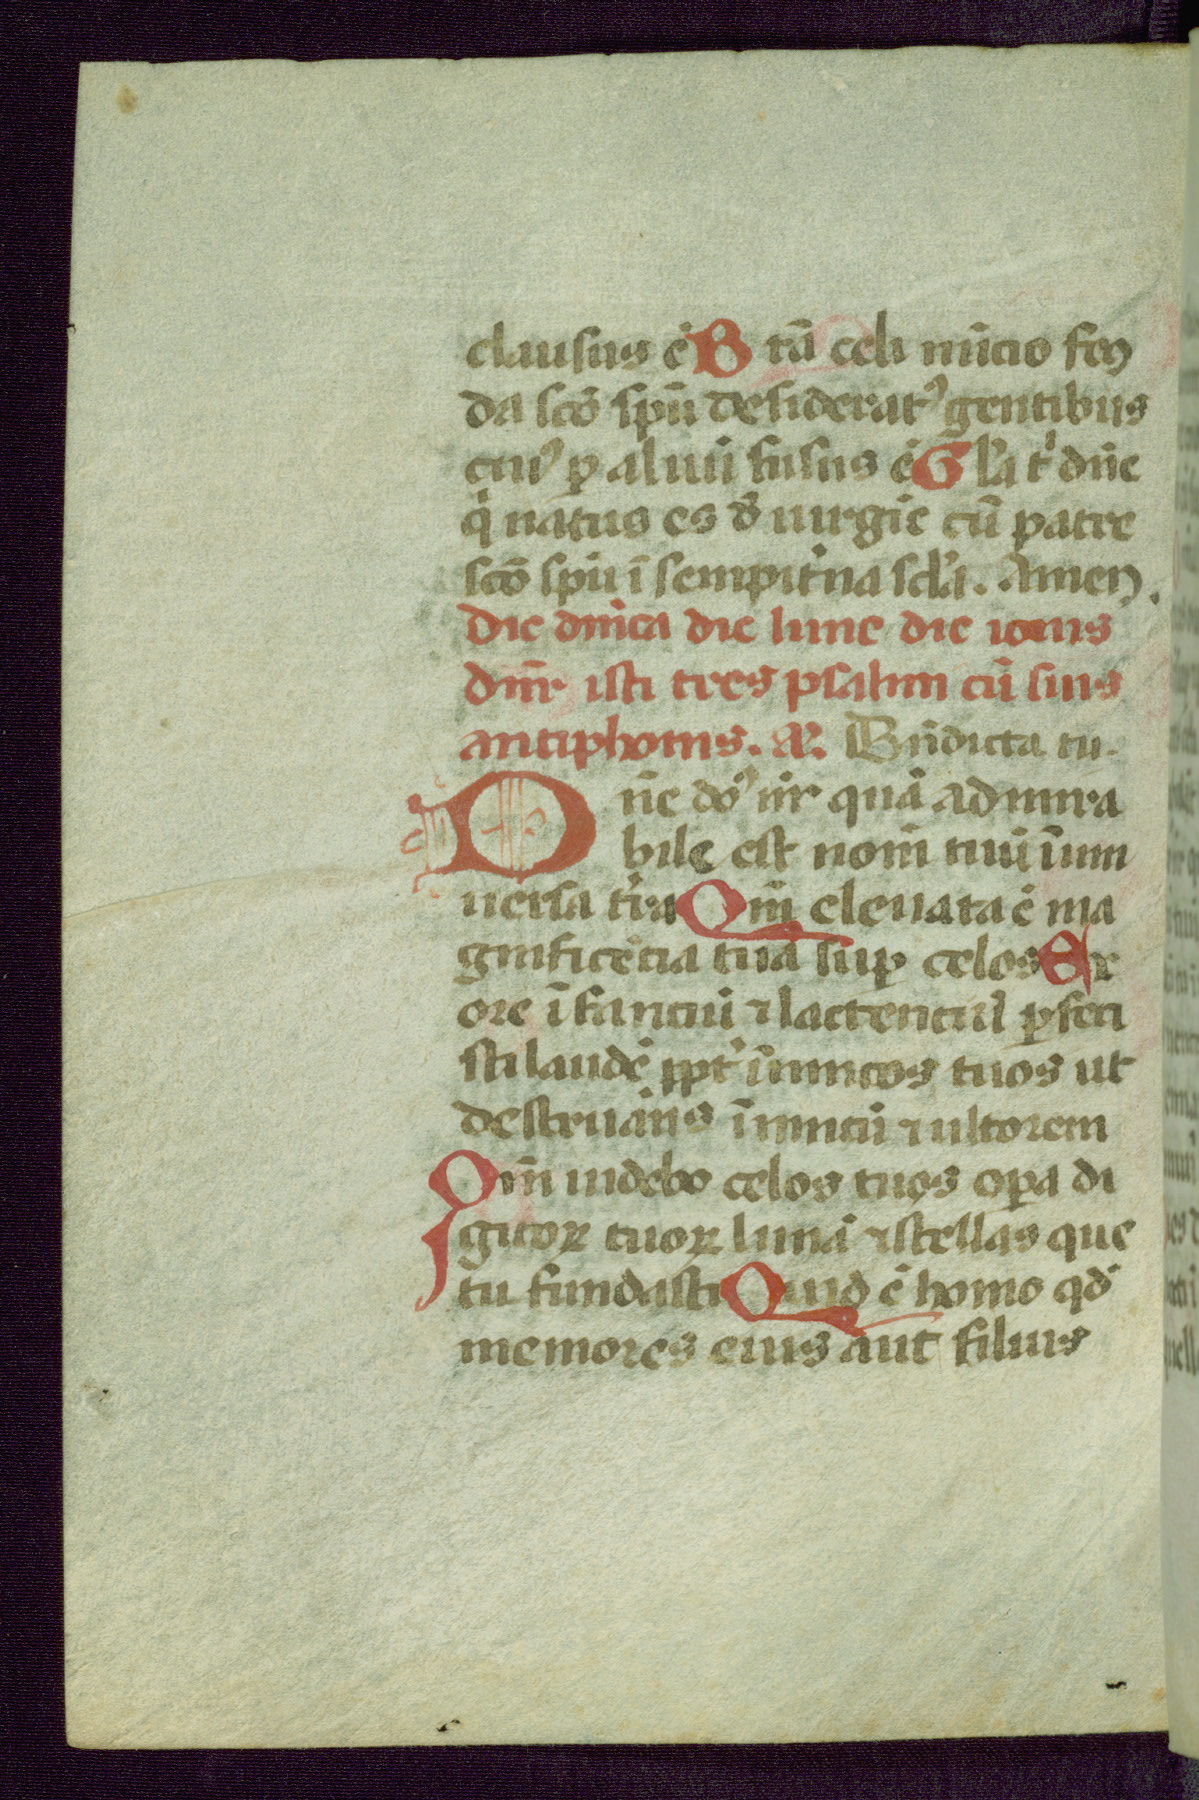 clausus ē B tā celi nūcio fcū
da sc̄o spū desiderat᾽ gentibus
cui᾽ ꝑ aluū fusus ē Gl̄a t' dn̄e
q̇ natus es d' uirgīe cū patre
sc̄o spū ī sempit'na scl'a. Amen.
Die dn̄ica die lune die iouis
dn̄r isti tres psalmi cū suis
antiphonis. añ. Bn̄dicta tu.
Dn̄e do᾽ nr̄ quā admira
bile est nom̄ tuū ī uni
uersa t'ra Qm̄ eleuata ē ma
gnificēcia tua suꝑ celos Ex
ore īfanciū ⁊ lactenciū ꝑfeci
sti laudē ꝓpt' īimicos tuos ut
destruās īimicū ⁊ ultorem
Qm̄ uidebo celos tuos oꝑa di
gitoꝝ tuoꝝ lunā ⁊ stellas que
tu fundasti Quid ē homo qd'
memores eius aut filius